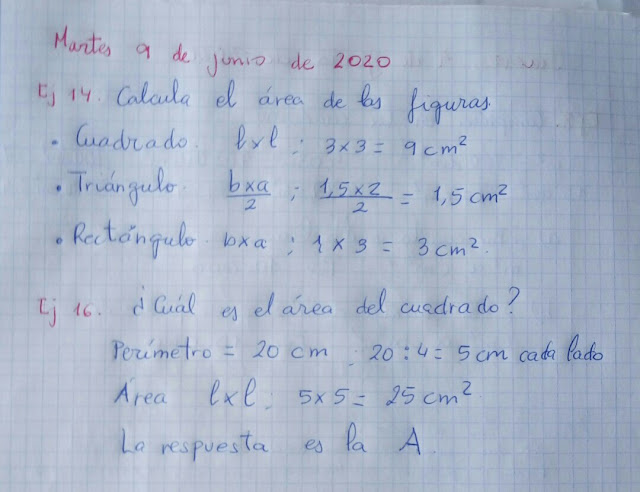 Martes 9 de junio de 2020
Ej 14. Calcula el área de las figuras.
• Cuadrado. l x l ; 3 x 3 = 9 cm²
• Triángulo. b x a / 2 ; 1,5 x 2 / 2 = 1,5 cm²
• Rectángulo. b x a ; 1 x 3 = 3 cm².
Ej 16. ¿Cuál es el área del cuadrado?
Perímetro = 20 cm ; 20 : 4 = 5 cm cada lado
Área l x l ; 5 x 5 = 25 cm².
La respuesta es la A.